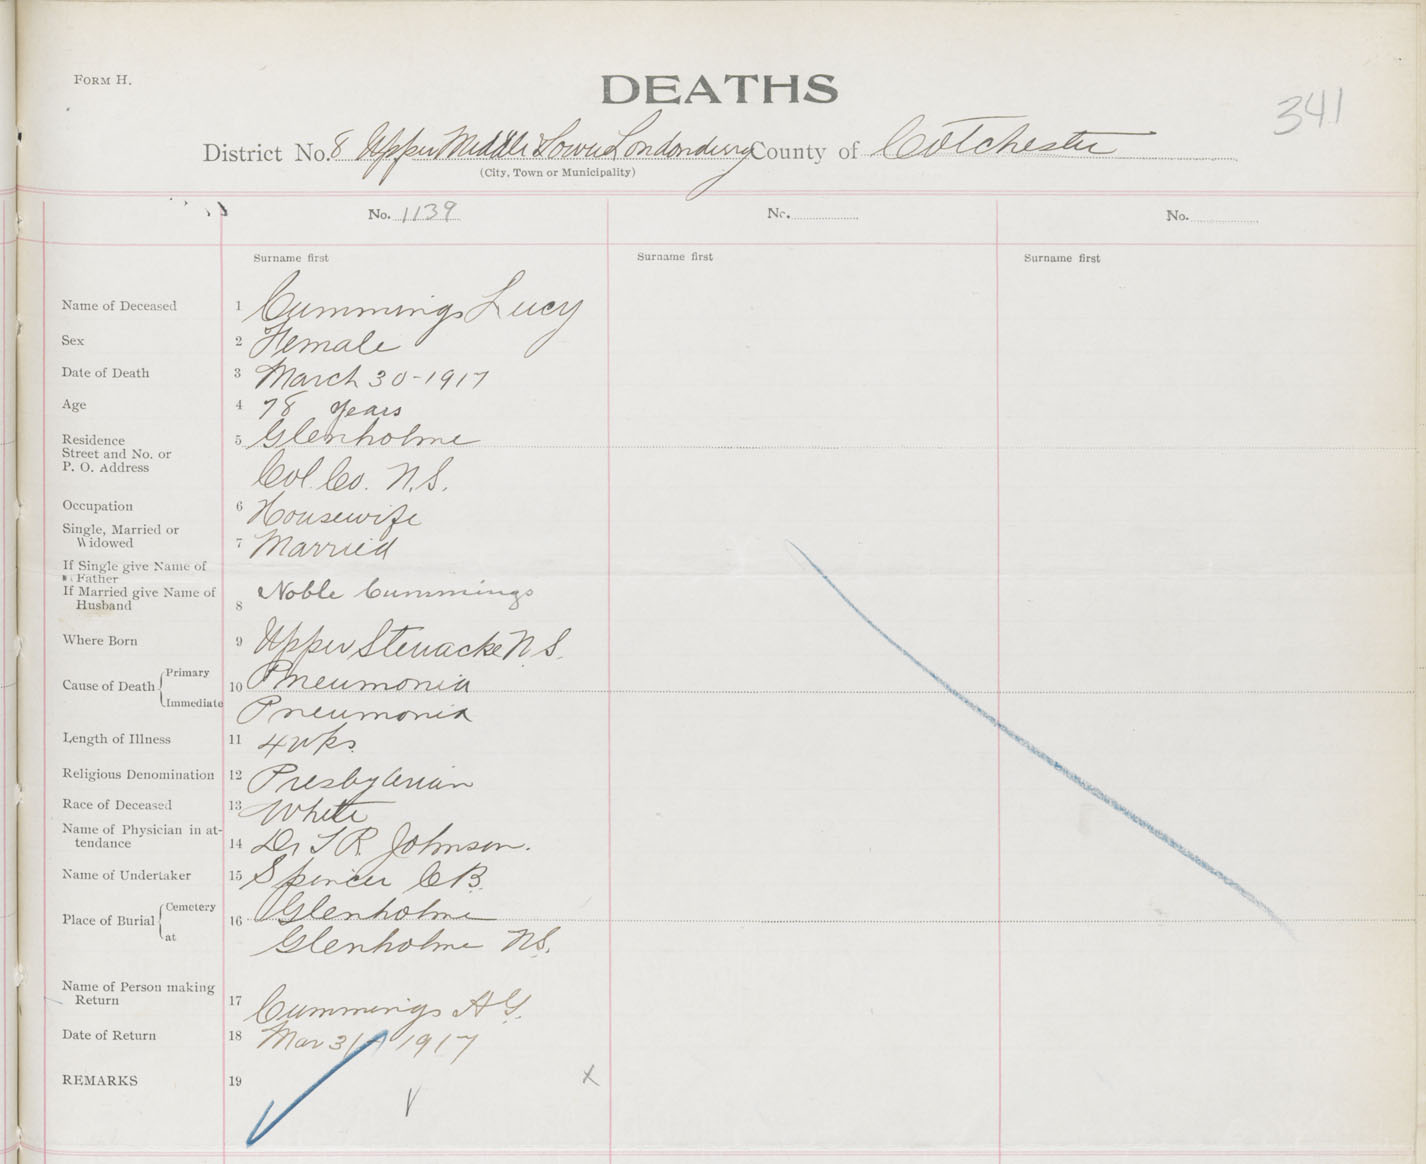 FORM H.
DEATHS
341
District No. 8 Upper Middle & Lower Londonderry County of Colchester
(City, Town or Municipality)
No. 1139 No. No.
Surname first Surname first Surname first
Name of Deceased 1 Cummings Lucy
Sex 2 Female
Date of Death 3 March 30-1917
Age 4 78 years
Residence 5 Glenholme
Street and No. or
P. O. Address Col. Co. N.S.
Occupation 6 Housewife
Single, Married or
Widowed 7 Married
If Single give Name of
Father
If Married give Name of Noble Cummings
Husband 8
Where Born 9 Upper Stewacke N.S.
Cause of Death Primary 10 Pneumonia
Immediate Pneumonia
Length of Illness 11 4 wks.
Religious Denomination 12 Presbyterian
Race of Deceased 13 White
Name of Physician in at-
tendance 14 Dr T R. Johnson.
Name of Undertaker 15 Spencer C B.
Place of Burial Cemetery 16 Glenholme
at Glenholme N.S.
Name of Person making
Return 17 Cummings A G.
Date of Return 18 Mar 31 1917
REMARKS 19 x